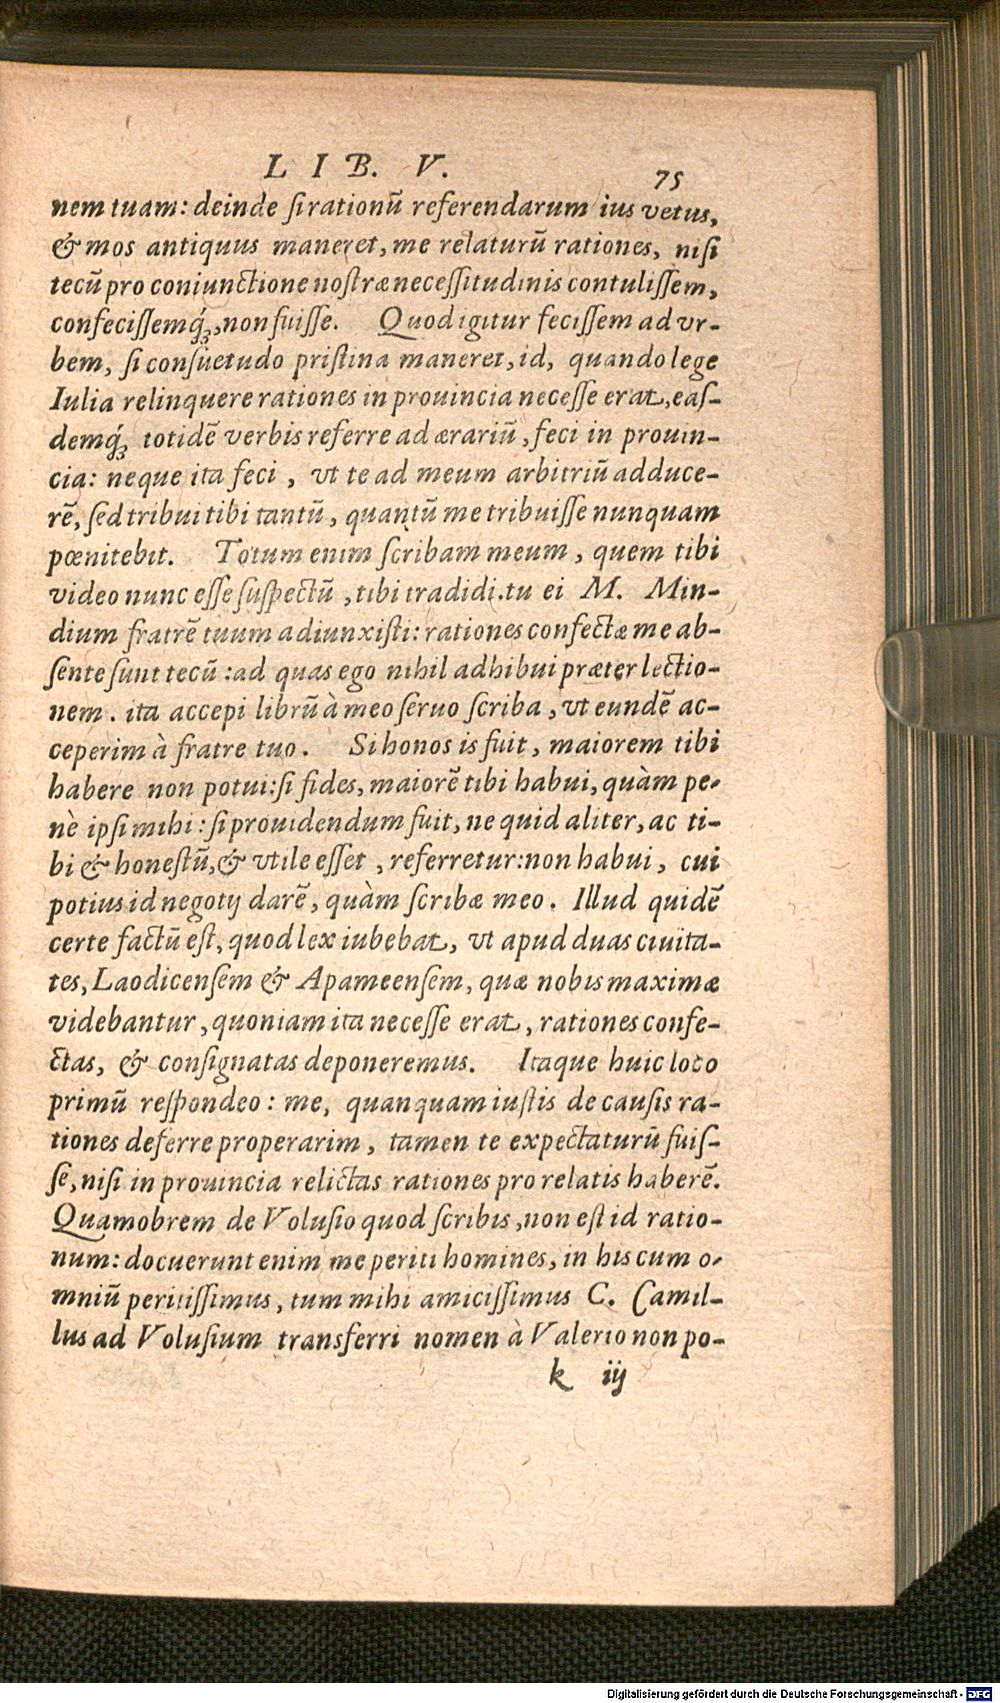 LIB. V. 75
nem tuam: deinde ſi rationū referendarum ius vetus,
& mos antiquus maneret, me relaturū rationes, niſi
tecū pro coniunctione noſtræ neceſſitudinis contuliſſem,
confeciſſemq́ꝫ, non fuiſſe. Quod igitur feciſſem ad vr-
bem, ſi conſuetudo priſtina maneret, id, quando lege
Iulia relinquere rationes in prouincia neceſſe erat, eaſ-
demq́ꝫ totidē verbis referre ad ærariū, feci in prouin-
cia: neque ita feci, vt te ad meum arbitriū adduce-
rē, ſed tribui tibi tantū, quantū me tribuiſſe nunquam
pœnitebit. Totum enim ſcribam meum, quem tibi
video nunc eſſe ſuſpectū, tibi tradidi. tu ei M. Min-
dium fratrē tuum adiunxiſti: rationes confectæ me ab-
ſente ſunt tecū: ad quas ego nihil adhibui præter lectio-
nem. ita accepi librū à meo ſeruo ſcriba, vt eundē ac-
ceperim à fratre tuo. Si honos is fuit, maiorem tibi
habere non potui: ſi fides, maiorē tibi habui, quàm pe-
nè ipſi mihi: ſi prouidendum fuit, ne quid aliter, ac ti-
bi & honeſtū, & vtile eſſet, referretur: non habui, cui
potius id negotij darē, quàm ſcribæ meo. Illud quidē
certe factū eſt, quod lex iubebat, vt apud duas ciuita-
tes, Laodicenſem & Apameenſem, quæ nobis maximæ
videbantur, quoniam ita neceſſe erat, rationes confe-
ctas, & conſignatas deponeremus. Itaque huic loco
primū reſpondeo: me, quanquam iuſtis de cauſis ra-
tiones deferre properarim, tamen te expectaturū fuiſ-
ſe, niſi in prouincia relictas rationes pro relatis haberē.
Quamobrem de Voluſio quod ſcribis, non eſt id ratio-
num: docuerunt enim me periti homines, in his cum o-
mniū peritiſſimus, tum mihi amiciſſimus C. Camil-
lus ad Voluſium transferri nomen à Valerio non po-
k iij
Digitalisierung gefördert durch die Deutsche Forschungsgemeinschaft - DFG